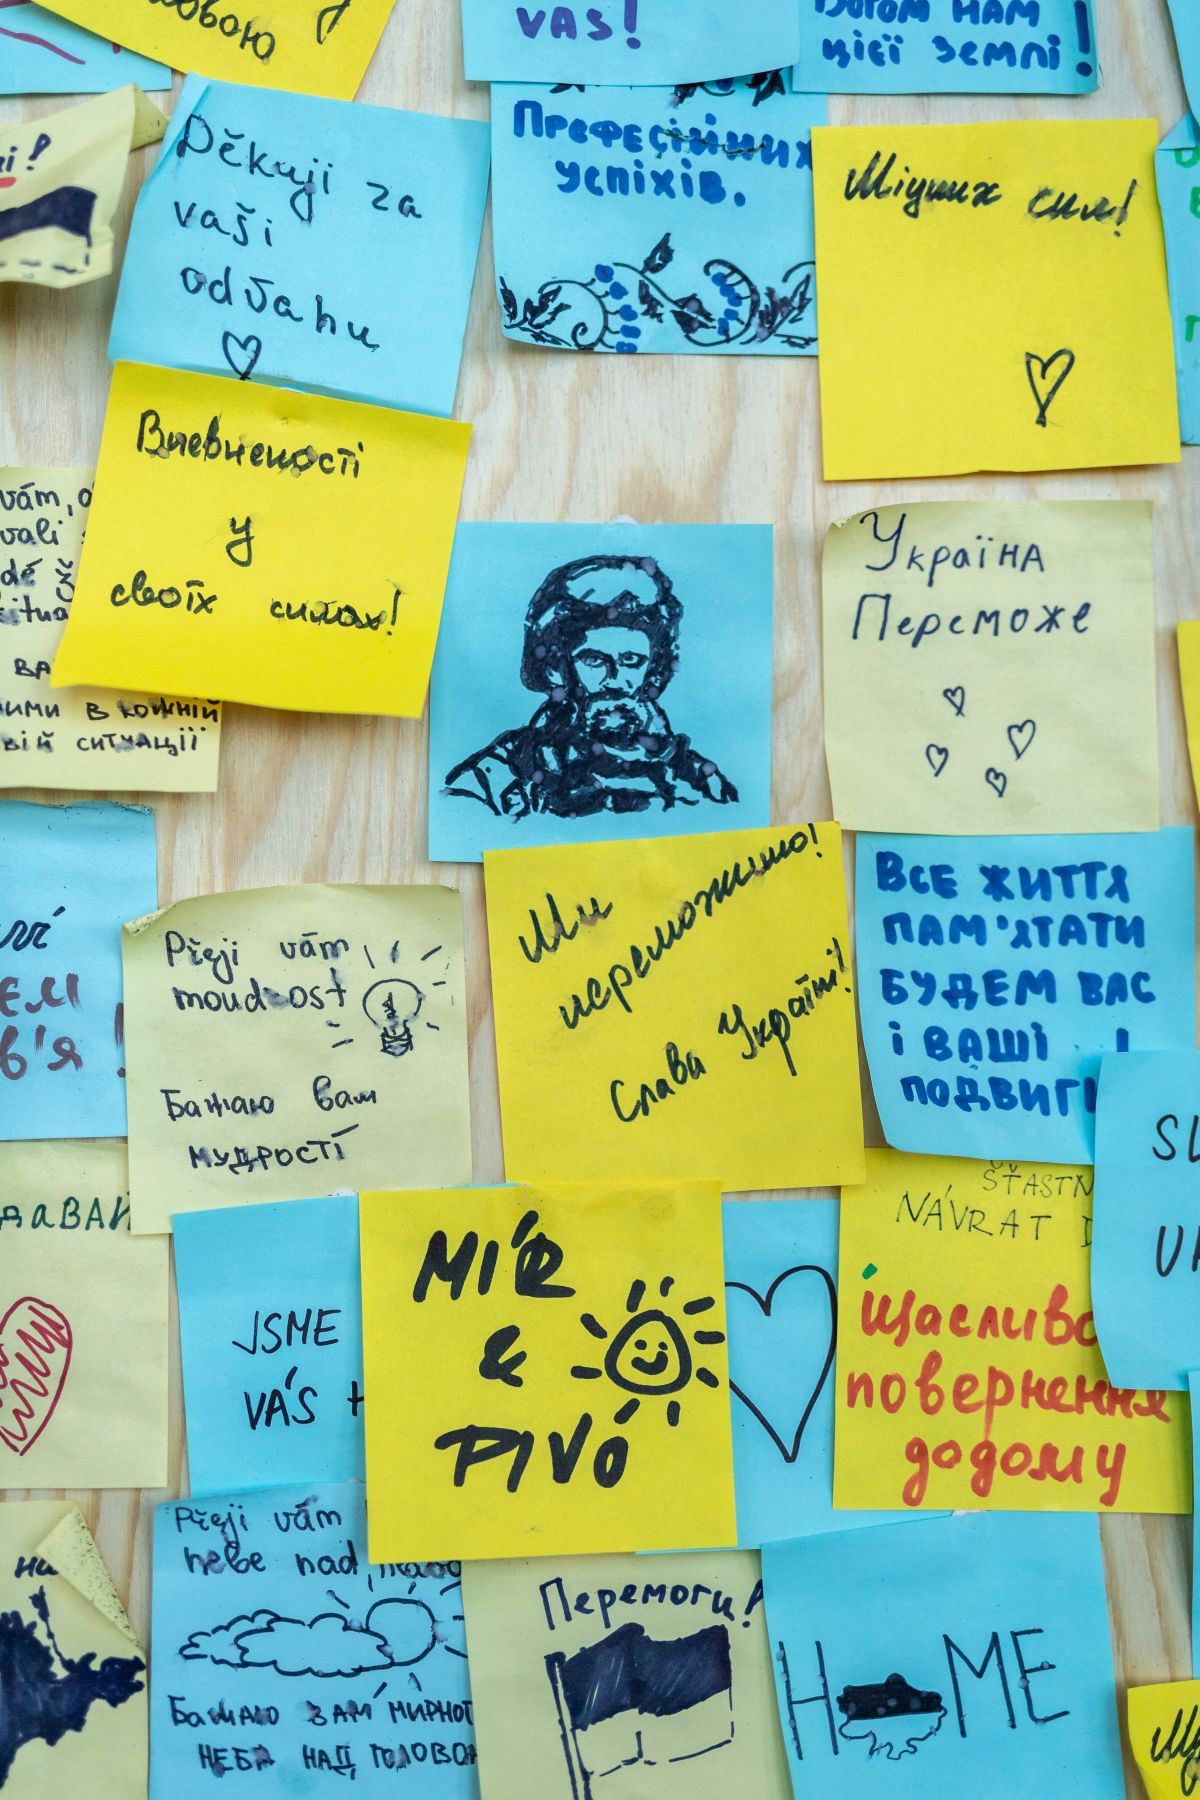 вою
VAS!
НАМ
цієї землі!
Děkuji za
vaši
odvahu
Професійних
успіхів.
Міцних сил!
Впевненості
у
своїх силах!
vám,
vali
dé
situa
ВА
ими в кожній
вій ситуації
Україна
Переможе
Ми
переможимо!
Слава Україні!
Все життя
пам'ятати
будем вас
і ваші
подвиги
Přeji vám
moudrost
Бажаю вам
мудрості
в'я!
давай
JSME
VÁS
MÍR
&
PIVÓ
ŠŤASTN
NÁVRAT D
Щасливо
повернення
додому
SL
Přeji vám
nebe nad
Бажаю вам мирног
неба над голово
Перемоги!
на
H ME